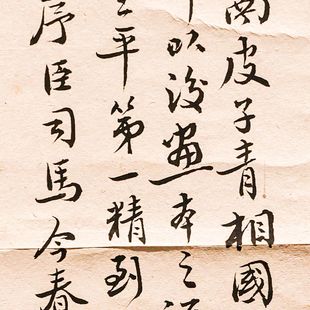 南皮子青相國
以後畫本之
平第一精到
序臣司馬今春